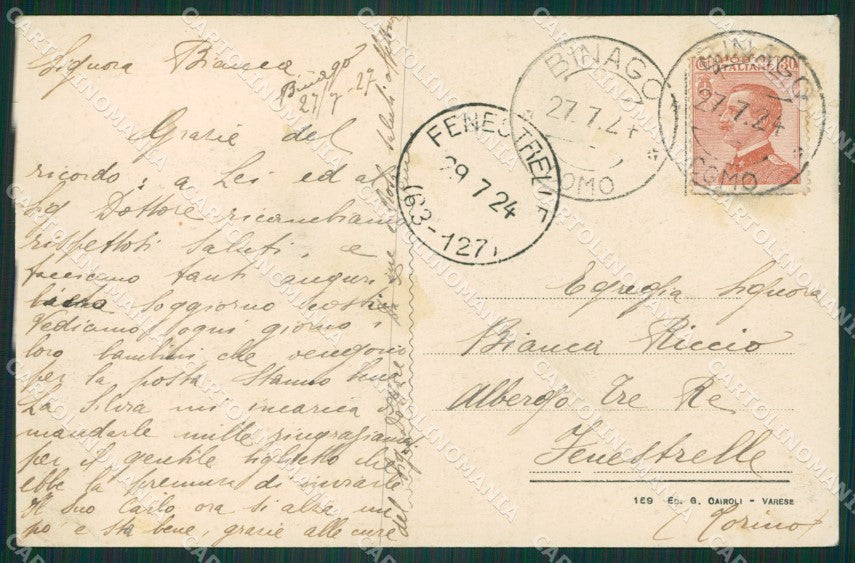 Signora Bianca
Binago
27/7-27
Grazie del
ricordo: a Lei ed al
Sig Dottore ricambiamo
rispettosi saluti, e
facciamo tanti auguri
soggiorno
Vediamo ogni giorno i
loro bambini che vengono
per la posta. Stanno bene
La Silvia mi incarica
mandarle mille ringraziamenti
per il gentile biglietto che
ebbe la premura di inviarle
Il Suo Carlo ora si alza un
po e sta bene, grazie alle cure
del Sig. Dottore
BINAGO
27.7.24
COMO
BINAGO
27.7.24
COMO
FENESTRELLE
29 7 24
(63-127)
60
ITALIANE
Egregia Signora
Bianca Riccio
Albergo Tre Re
Fenestrelle
(Torino)
159 ED. G. CAIROLI - VARESE
CARTOLINOMANIA